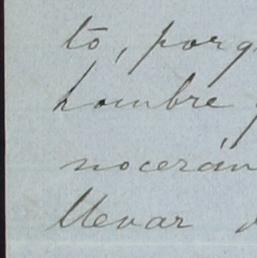 to, porq
hombre
nocerán
llevar